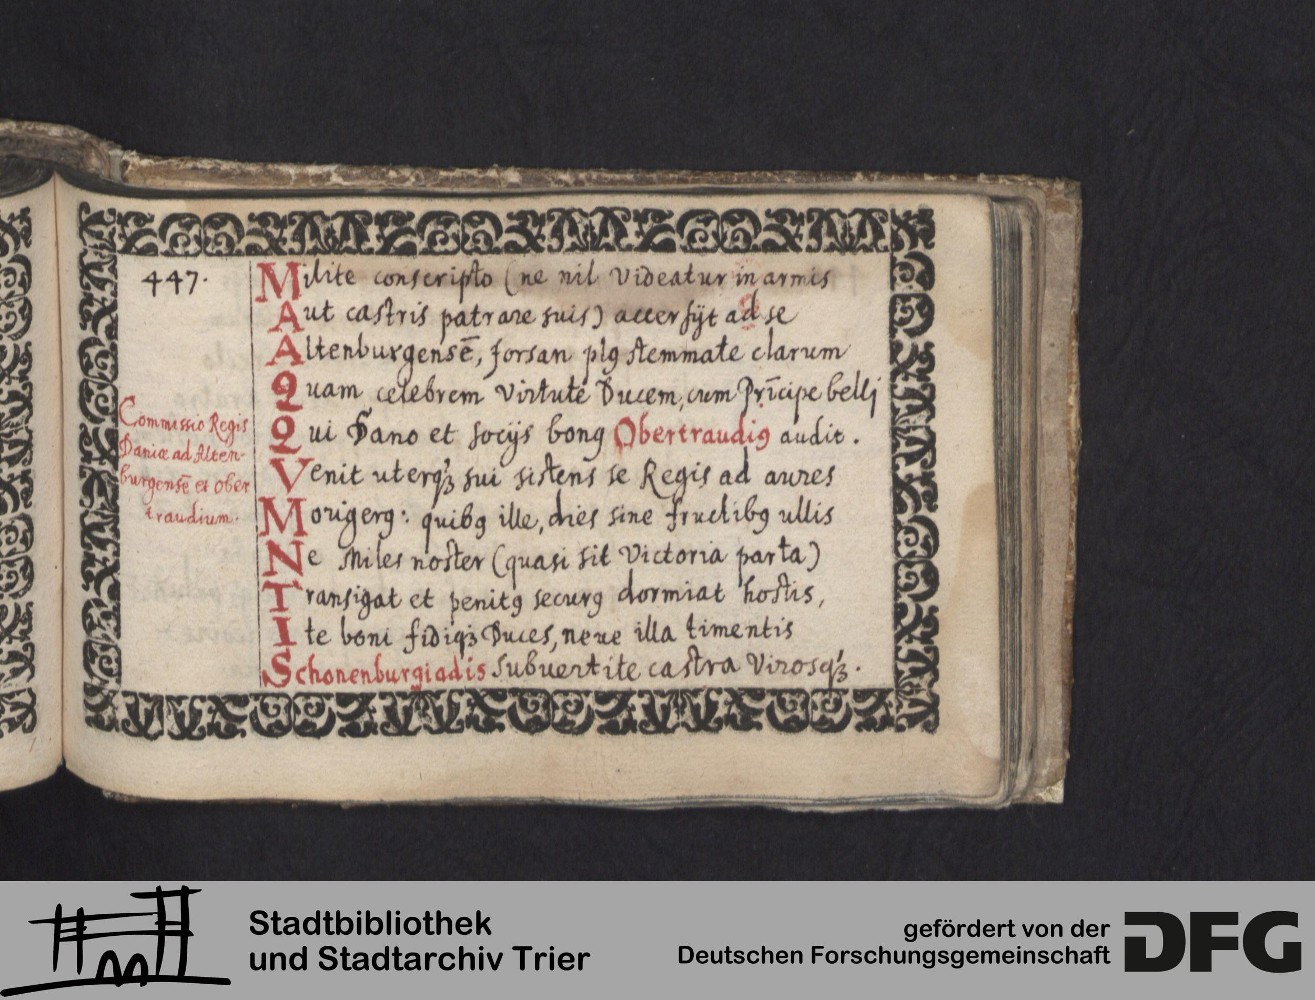 447.
Milite conscripto (ne nil videatur in armis
Aut castris patrare suis) accersijt ad se
Altenburgensē, forsan plꝰ stemmate clarum
Quam celebrem virtute Ducem, cum Prīcipe bellj
Qui Dano et socijs bonꝰ Obertraudiꝰ audit.
Venit uterqꝫ sui sistens se Regis ad aures
Morigerꝰ: quibꝰ ille, dies sine fructibꝰ ullis
Ne Miles noster (quasi sit Victoria parta)
Transigat et penitꝰ securꝰ dormiat hostis,
Ite boni fidiqꝫ Duces, neue illa timentis
Schonenburgiadis subuertite castra virosqꝫ.
Commissio Regis
Daniæ ad Alten-
burgensē et ober
traudium.
Stadtbibliothek
und Stadtarchiv Trier
gefördert von der
Deutschen Forschungsgemeinschaft
DFG